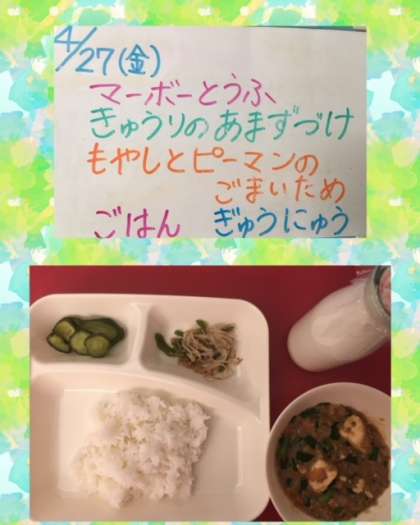 4/27(金)
マーボーとうふ
きゅうりのあまずづけ
もやしとピーマンの
ごまいため
ごはん ぎゅうにゅう